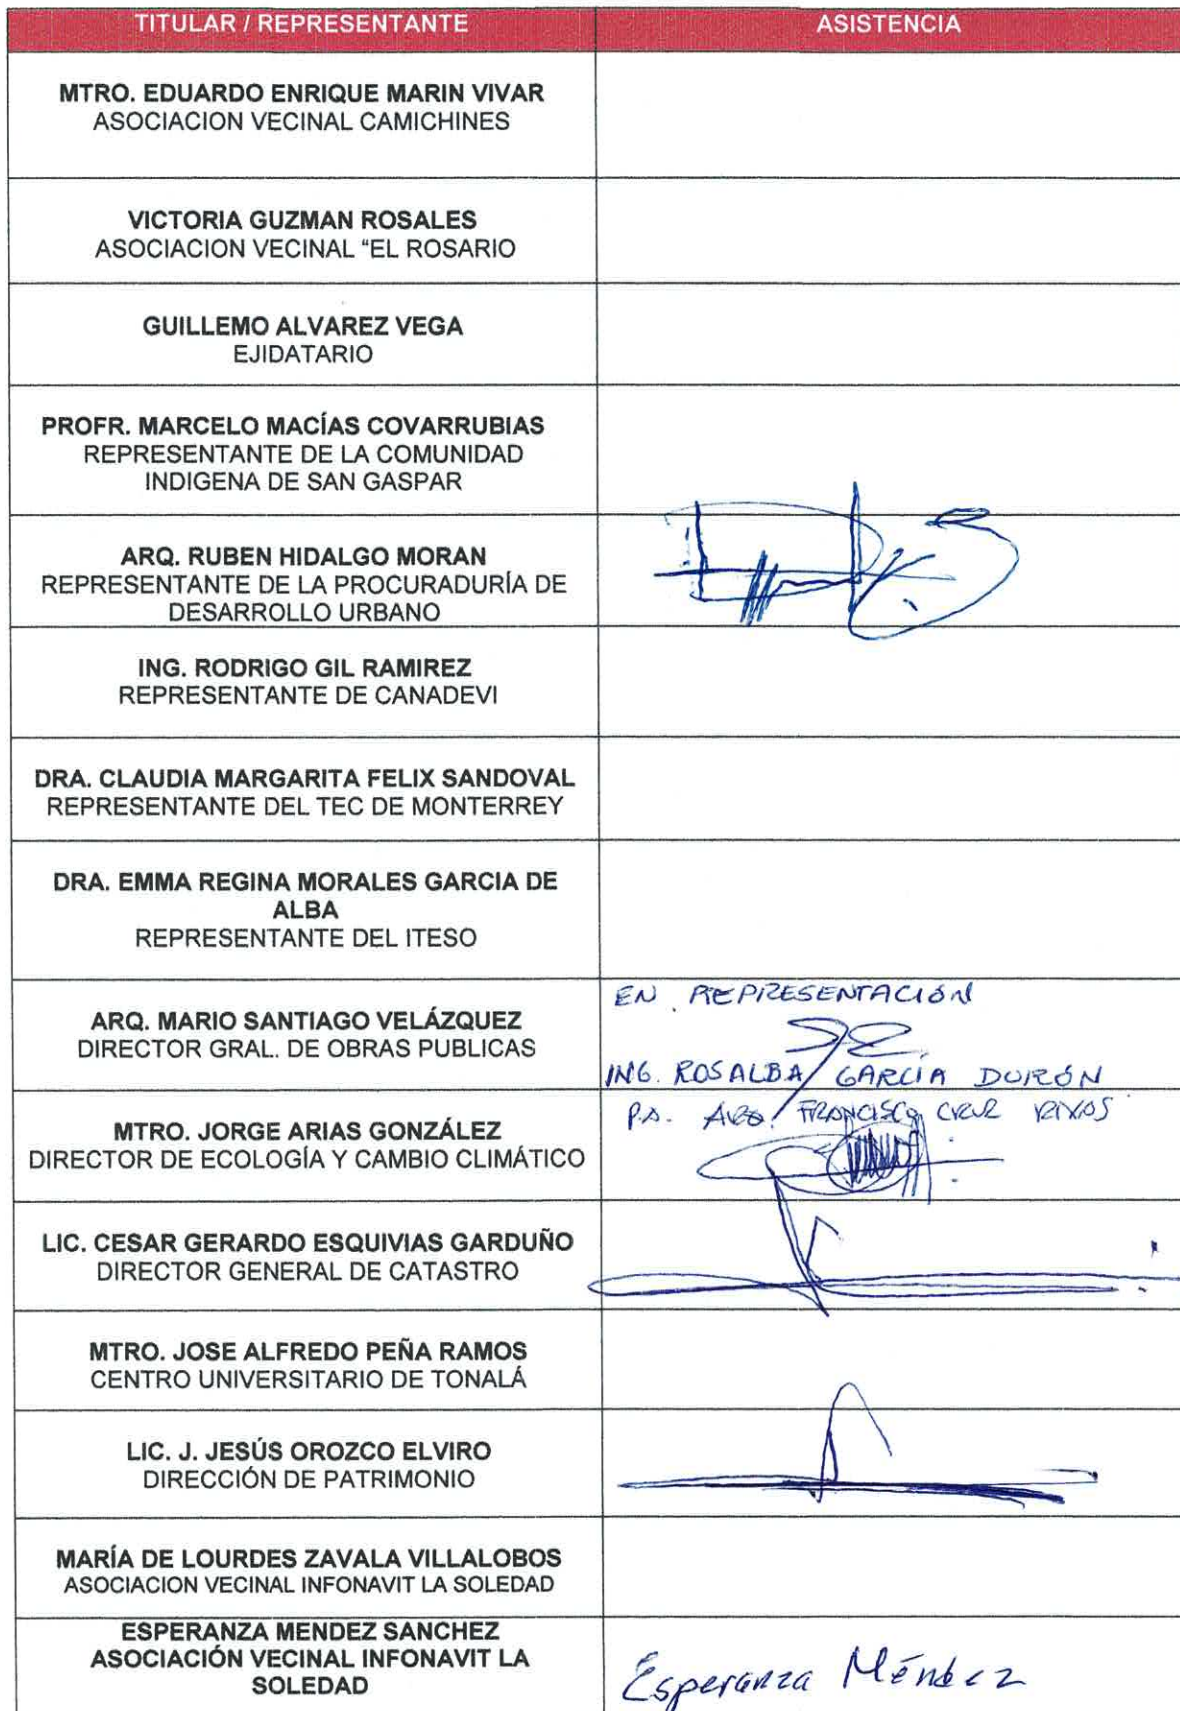 TITULAR / REPRESENTANTE
ASISTENCIA
MTRO. EDUARDO ENRIQUE MARIN VIVAR
ASOCIACION VECINAL CAMICHINES
VICTORIA GUZMAN ROSALES
ASOCIACION VECINAL “EL ROSARIO
GUILLEMO ALVAREZ VEGA
EJIDATARIO
PROFR. MARCELO MACÍAS COVARRUBIAS
REPRESENTANTE DE LA COMUNIDAD
INDIGENA DE SAN GASPAR
ARQ. RUBEN HIDALGO MORAN
REPRESENTANTE DE LA PROCURADURÍA DE
DESARROLLO URBANO
ING. RODRIGO GIL RAMIREZ
REPRESENTANTE DE CANADEVI
DRA. CLAUDIA MARGARITA FELIX SANDOVAL
REPRESENTANTE DEL TEC DE MONTERREY
DRA. EMMA REGINA MORALES GARCIA DE
ALBA
REPRESENTANTE DEL ITESO
ARQ. MARIO SANTIAGO VELÁZQUEZ
DIRECTOR GRAL. DE OBRAS PUBLICAS
EN REPRESENTACIÓN
ING. ROSALBA GARCÍA DURÓN
MTRO. JORGE ARIAS GONZÁLEZ
DIRECTOR DE ECOLOGÍA Y CAMBIO CLIMÁTICO
P.A. FRANCISCO CRUZ
LIC. CESAR GERARDO ESQUIVIAS GARDUÑO
DIRECTOR GENERAL DE CATASTRO
MTRO. JOSE ALFREDO PEÑA RAMOS
CENTRO UNIVERSITARIO DE TONALÁ
LIC. J. JESÚS OROZCO ELVIRO
DIRECCIÓN DE PATRIMONIO
MARÍA DE LOURDES ZAVALA VILLALOBOS
ASOCIACION VECINAL INFONAVIT LA SOLEDAD
ESPERANZA MENDEZ SANCHEZ
ASOCIACIÓN VECINAL INFONAVIT LA
SOLEDAD
Esperanza Méndez